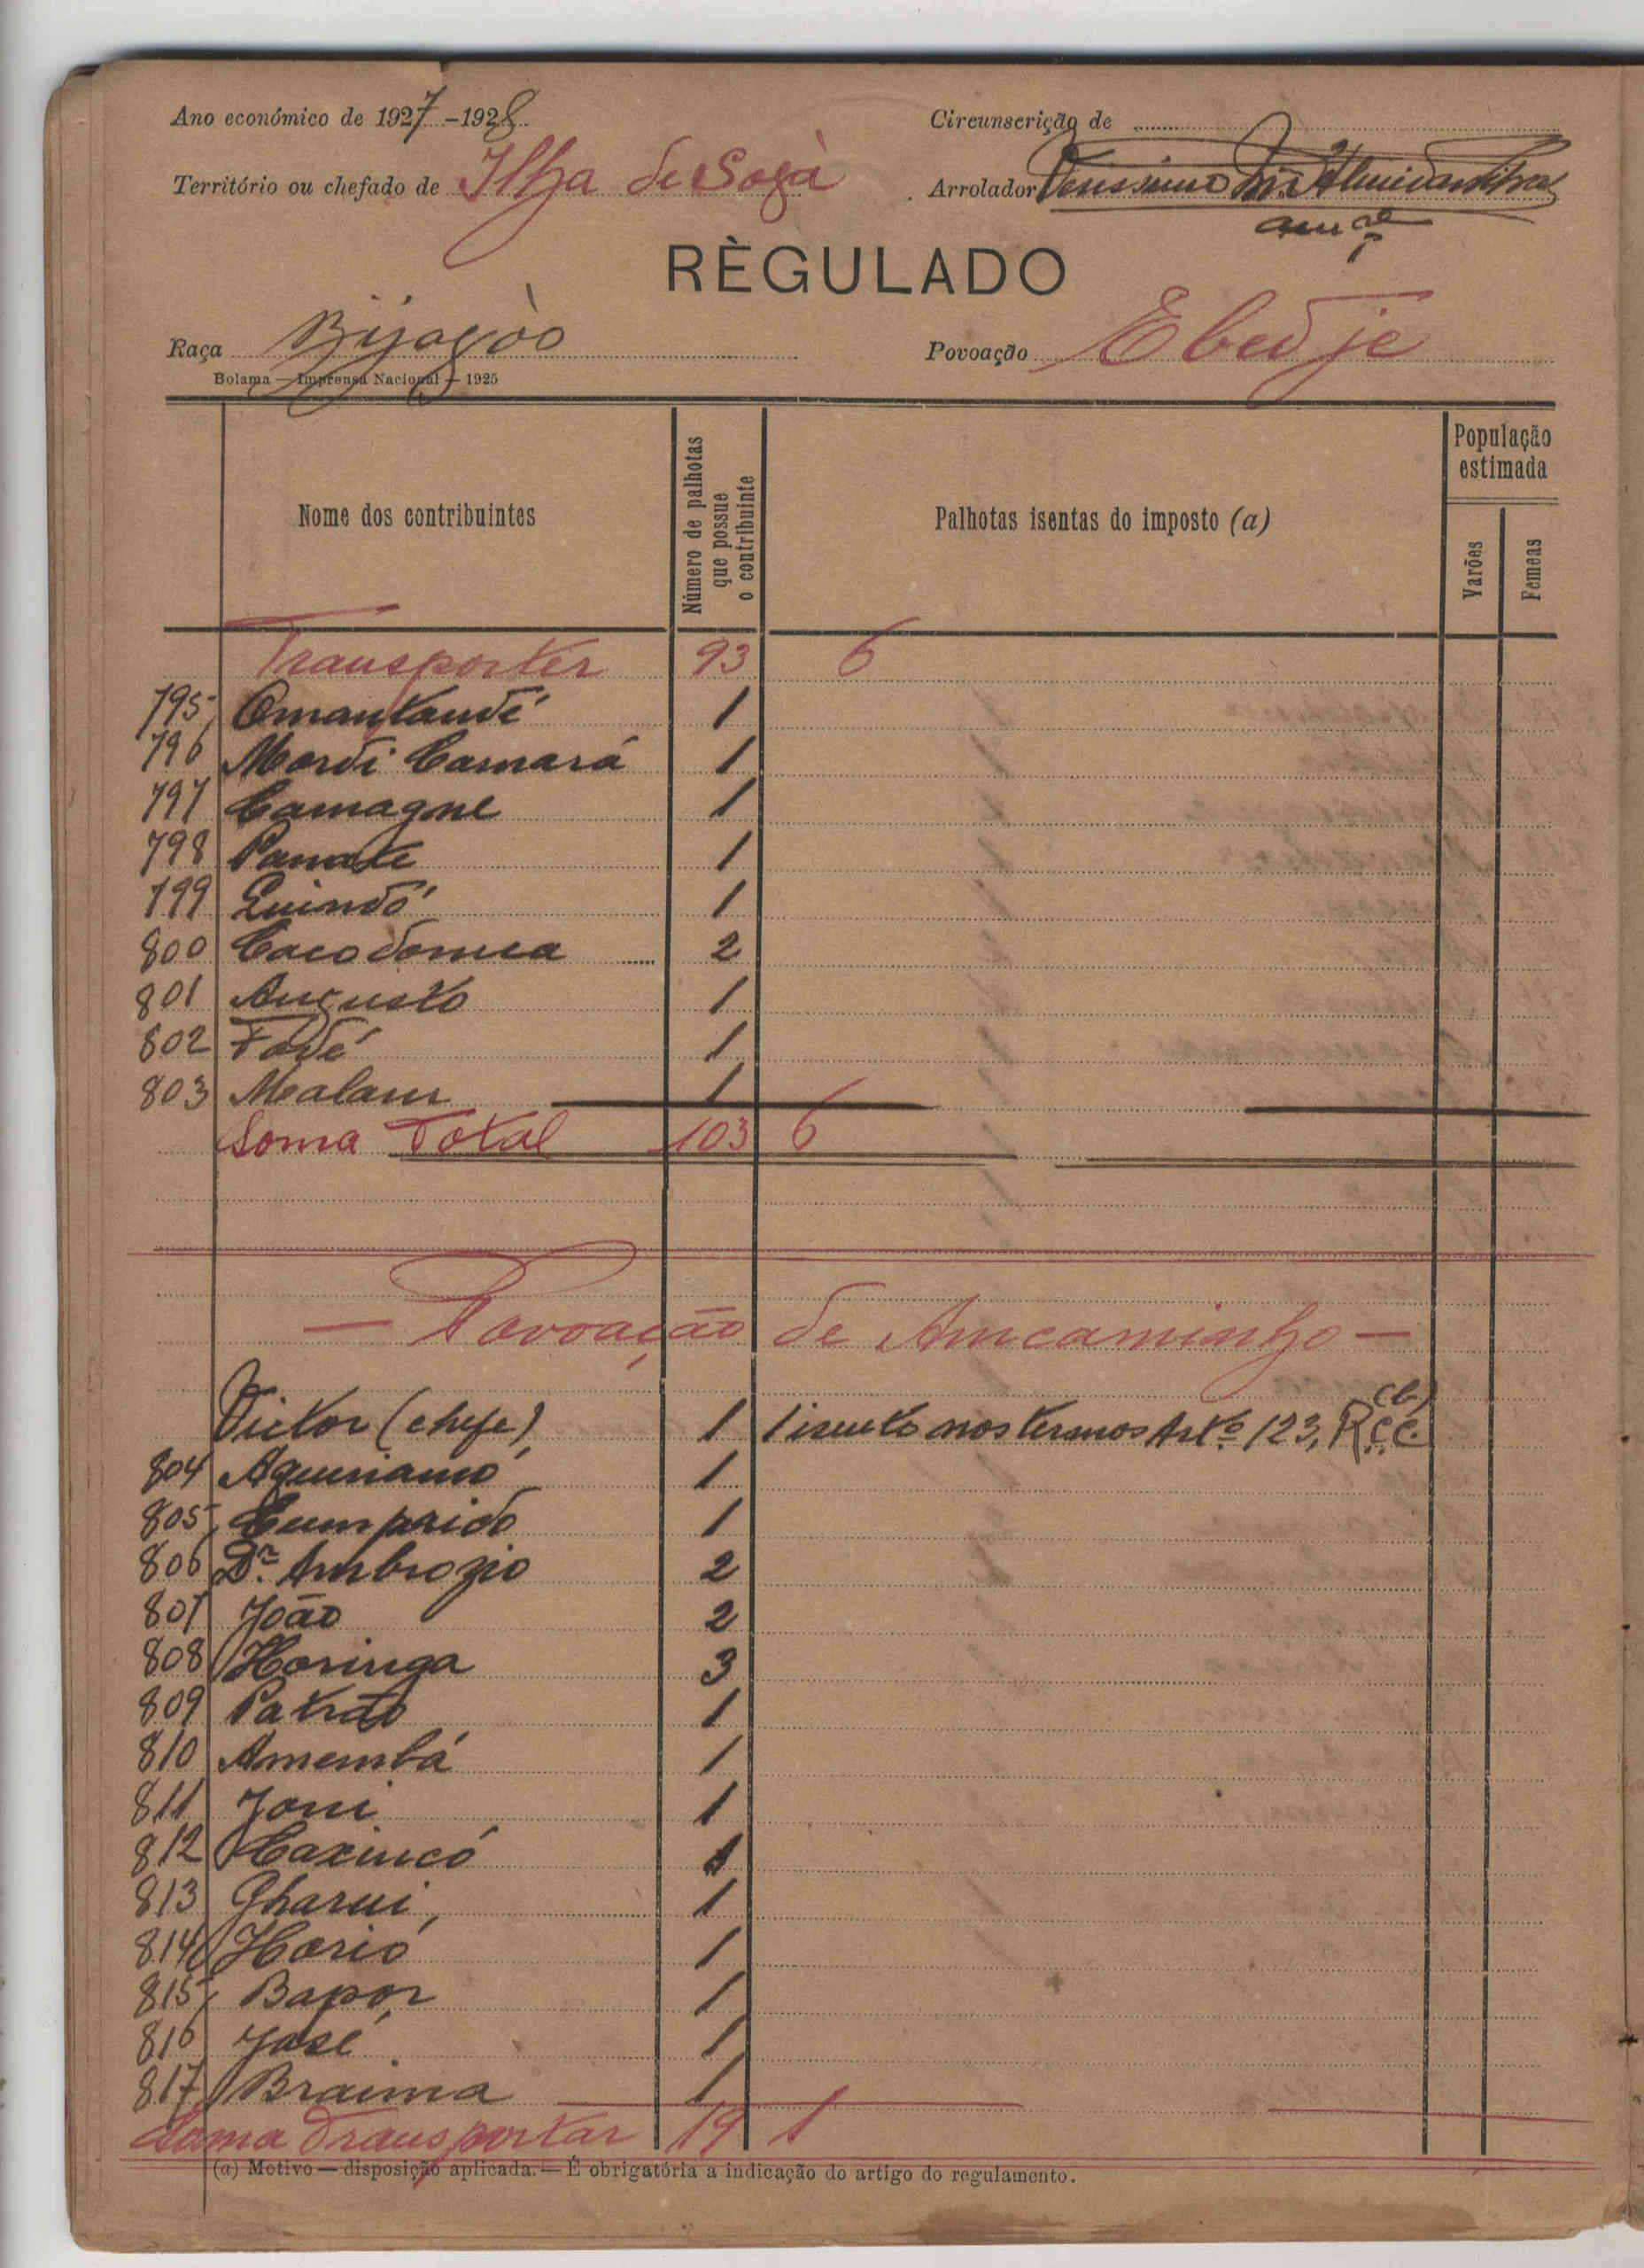 Ano económico de 1927-1928 Circunscrição de
Território ou chefado de Ilha de Sogà Arrolador
RÈGULADO
Raça Bijagòs Povoação Ebedje
Bolama — Imprensa Nacional — 1925
Nome dos contribuintes Número de palhotas que possue o contribuinte Palhotas isentas do imposto (a) População estimada Varões Femeas
Transporter 93 6
795 Omantandé 1
796 Mordi Camará 1
797 Camagne 1
798 Panate 1
799 Quindó 1
800 Cacodomea 2
801 Augusto 1
802 Fodé 1
803 Malam 1
Soma Total 103 6
— Povoação de Ancaminho —
Victor (chefe) 1 1 isento nos termos Artº 123, (b) R.C.C.
804 1
805 Cumprido 1
806 Dr. Ambrozio 2
807 João 2
808 Horinga 3
809 Patrão 1
810 Amembá 1
811 Joni 1
812 Caxincó 1
813 Gharui 1
814 Horió 1
815 Bapor 1
816 José 1
817 Braima 1
Soma Transportar 19 1
(a) Motivo — disposição aplicada. — É obrigatória a indicação do artigo do regulamento.